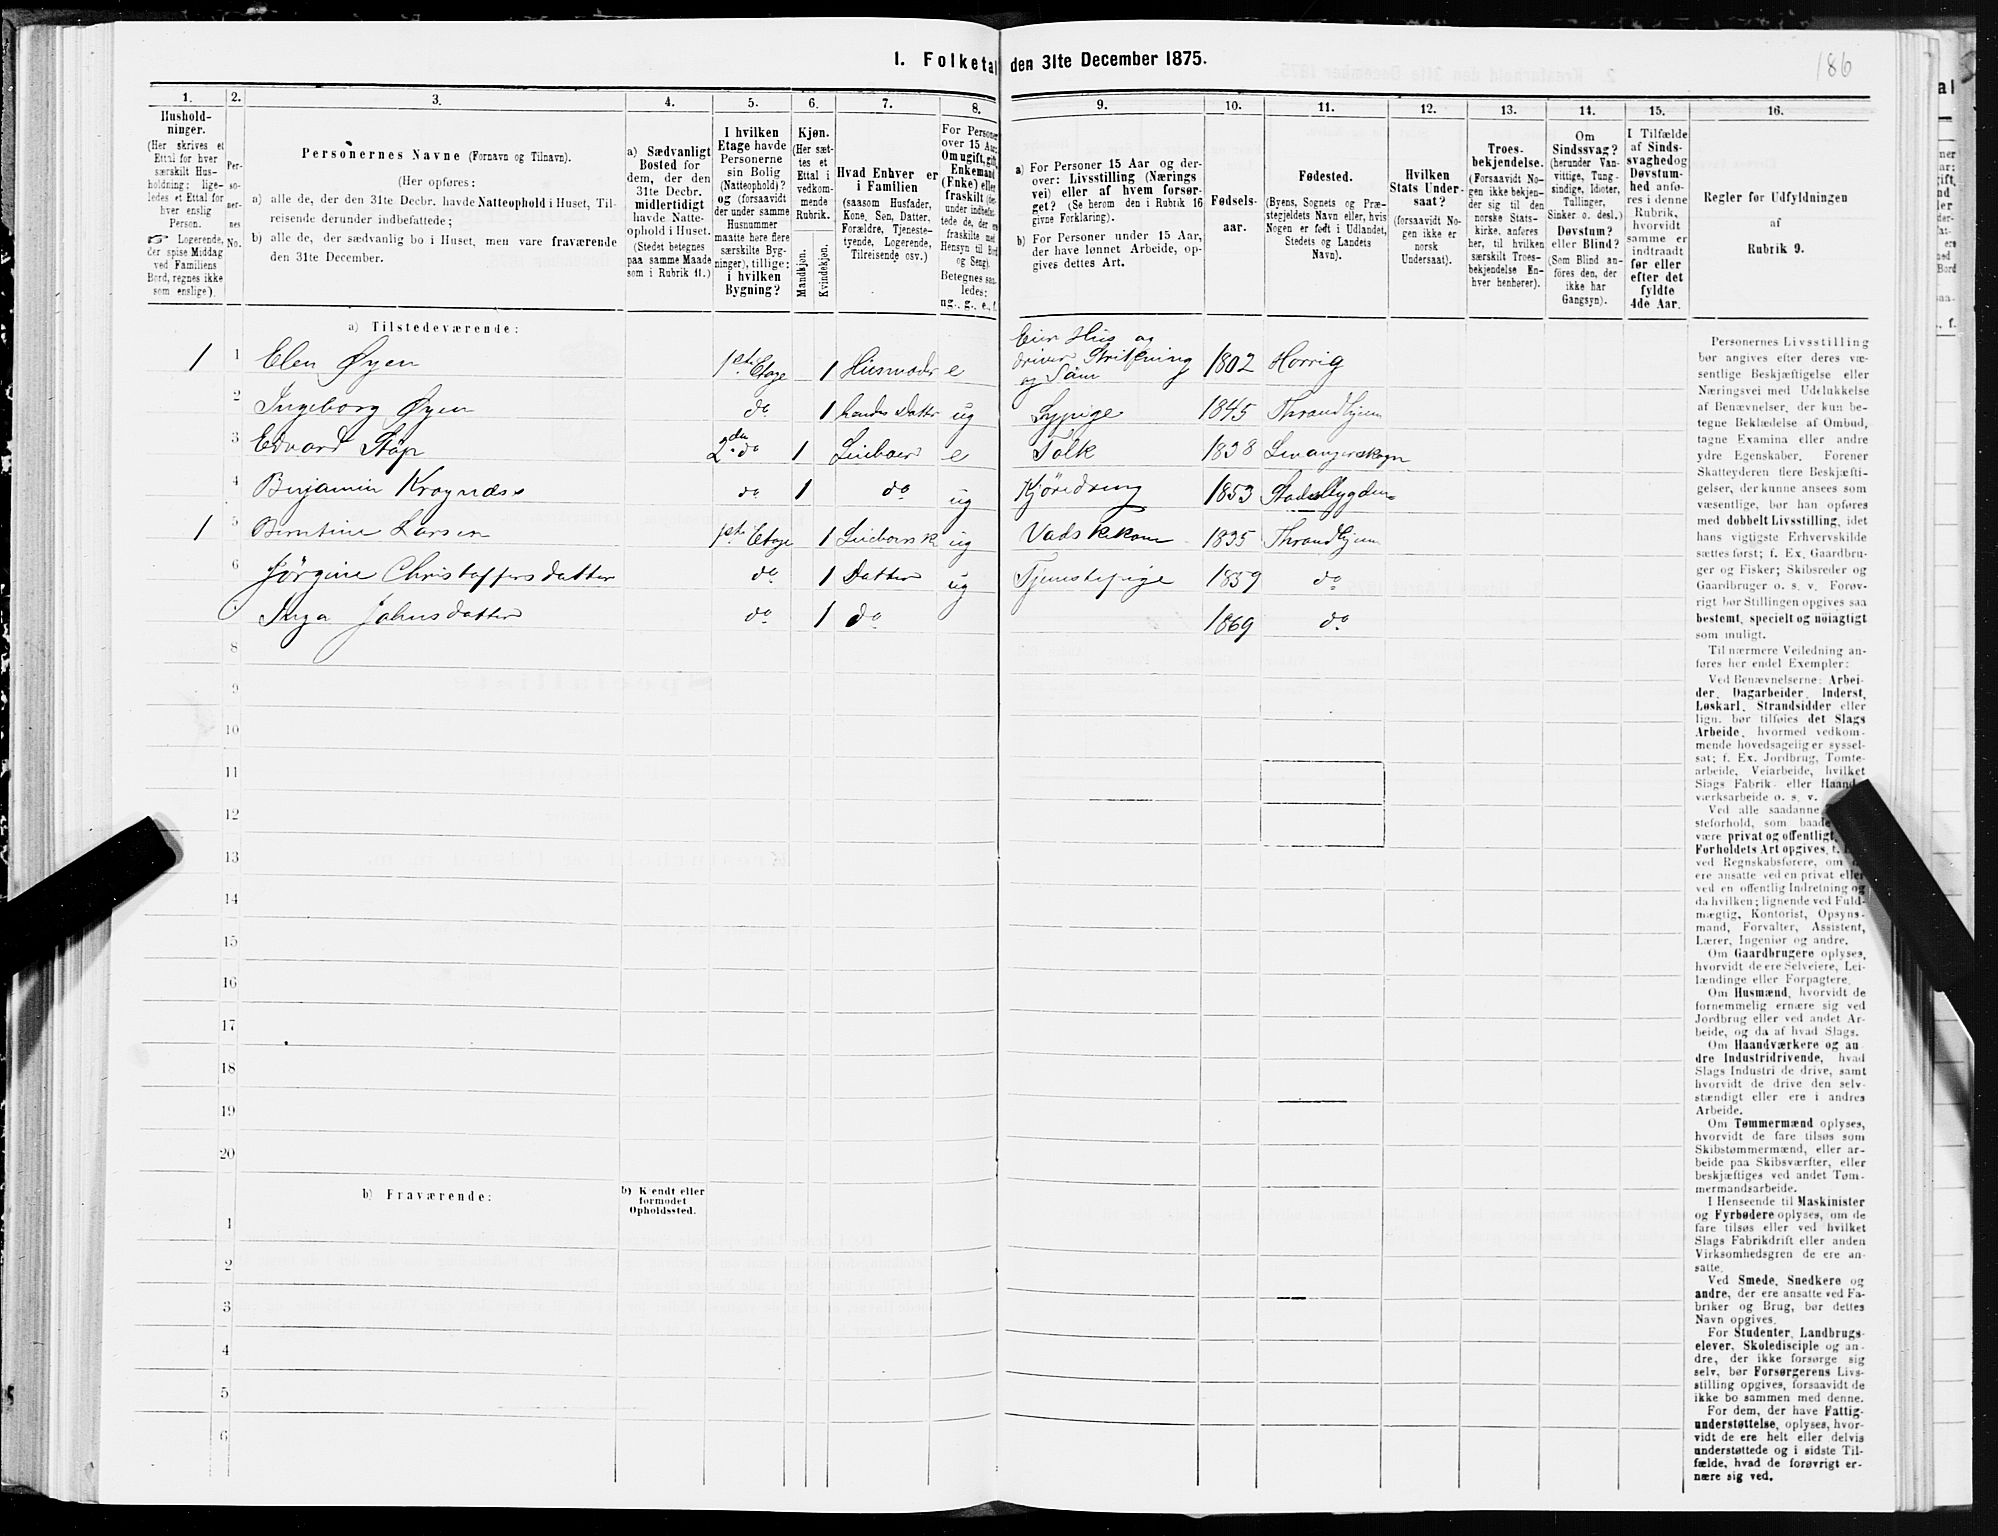 186
I. Folketal den 31te December 1875.
1. 2. 3. 4. 5. 6. 7. 8. 9. 10. 11. 12. 13. 14. 15. 16.
Hushold-
ninger.
(Her skrives et
Ettal for hver
særskilt Hus-
holdning; lige-
ledes et Ettal for
hver enslig
Person.
☞ Logerende,
der spise Middag
ved Familiens
Bord, regnes ikke
som enslige).
Per-
so-
ner-
nes
No.
Personernes Navne (Fornavn og Tilnavn).
(Her opføres:
a) alle de, der den 31te Decbr. havde Natteophold i Huset, Til-
reisende derunder indbefattede;
b) alle de, der sædvanlig bo i Huset, men vare fraværende
den 31te December.
a) Sædvanligt
Bosted for
dem, der den
31te Decbr.
midlertidigt
havde Natte-
ophold i Huset.
(Stedet betegnes
paa samme Maade
som i Rubrik 11.)
I hvilken
Etage havde
Personerne
sin Bolig
(Natteophold)?
og (forsaavidt
der under samme
Husnummer
maatte høre flere
særskilte Byg-
ninger), tillige:
i hvilken
Bygning?
Kjøn.
(Her sæt-
tes et
Ettal i
vedkom-
mende
Rubrik.
Mandkjøn.
Kvindekjøn.
Hvad Enhver er
i Familien
(saasom Husfader,
Kone, Søn, Datter,
Forældre, Tjeneste-
tyende, Logerende,
Tilreisende osv.)
For Personer
over 15 Aar:
Om ugift, gift,
Enkemand
(Enke) eller
fraskilt
Betegnes saa-
ledes:
ug., g., e., f.
a) For Personer 15 Aar og der-
over: Livsstilling (Nærings
vei) eller af hvem forsør-
get? (Se herom den i Rubrik 16
givne Forklaring).
b) For Personer under 15 Aar,
der have lønnet Arbeide, op-
gives dettes Art.
Fødsels-
aar.
Fødested.
(Byens, Sognets og Præ-
stegjeldets Navn eller, hvis
Nogen er født i Udlandet,
Stedets og Landets
Navn).
Hvilken
Stats Under-
saat?
(forsaavidt No-
gen ikke er
norsk
Undersaat).
Troes-
bekjendelse.
(Forsaavidt No-
gen ikke bekjen-
der sig til den
norske Stats-
kirke, anføres
her, til hvilken
særskilt Troes-
bekjendelse En-
hver henhører).
Om
Sindssvag?
(herunder Van-
vittige, Tung-
sindige, Idioter,
Tullinger,
Sinker o. desl.)
Døvstum?
eller Blind?
(Som Blind an-
føres den, der
ikke har
Gangsyn).
I Tilfælde
af Sinds-
svaghed og
Døvstum-
hed anfø-
res i denne
Rubrik,
hvorvidt
samme er
indtraadt
før eller
efter det
fyldte
4de Aar.
Regler for Udfyldningen
af
Rubrik 9.
a) Tilstedeværende:
1 1 Elen Øyen 1ste Etage 1 Husmoder e Eier Hus og driver Strikning og Søm 1802 Horrig
2 Ingeborg Øyen do 1 hendes Datter ug Sypige 1845 Throndhjem
3 Edvard Støp 2den do 1 Leieboer e Tolk 1838 Levangerskogn
4 Benjamin Kragnæss do 1 do ug Kjøredreng 1853 Stadsbygden
1 5 Berntine Larsen 1ste Etage 1 ug Vadskekone 1835 Throndhjem
6 Jørgine Christoffersdatter do 1 Datter ug Tjenestepige 1859 do
Inga Johnsdatter do 1 do 1869 do
8
9
10
11
12
13
14
15
16
17
18
19
20
b) Fraværende:
b) Kjendt eller
formodet
Opholdssted.
1
2
3
4
5
6
Personernes Livsstilling
bør angives efter deres væ-
sentlige Beskjæftigelse eller
Næringsvei med Udelukkelse
af Benævnelser, der kun be-
tegne Beklædelse af Ombud,
tagne Examina eller andre
ydre Egenskaber. Forener
Skatteyderen flere Beskjæfti-
gelser, der kunne ansees som
væsentlige, bør han opføres
med dobbelt Livsstilling, idet
hans vigtigste Erhvervskilde
sættes først; f. Ex. Gaardbru-
ger og Fisker; Skibsreder og
Gaardbruger o. s. v. Forøv-
rigt bør Stillingen opgives saa
bestemt, specielt og nøiagtigt
som muligt.
Til nærmere Veiledning an-
føres her endel Exempler:
Ved Benævnelserne: Arbei-
der, Dagarbeider, Inderst,
Løskarl, Strandsidder eller
lign. bør tilføies det Slags
Arbeide, hvormed vedkom-
mende hovedsagelig er syssel-
sat; f. Ex. Jordbrug, Tomte-
arbeide, Veiarbeide, hvilket
Slags Fabrik- eller Haand-
værksarbeide o. s. v.
Ved alle saadanne
steforhold, som baade
være privat og offentligt,
Forholdets Art opgives, f.
ved Regnskabsførere, om
ere ansatte ved en privat eller
ved en offentlig Indretning og
da hvilken; lignende ved Fuld-
mægtig, Kontorist, Opsyns-
mand, Forvalter, Assistent,
Lærer, Ingeniør og andre.
Om Gaardbrugere oplyses,
hvorvidt de ere Selveiere, Lei-
lændinge eller Forpagtere.
Om Husmænd, hvorvidt de
fornemmelig ernære sig ved
Jordbrug eller ved andet Ar-
beide, og da af hvad Slags.
Om Haandværkere og an
dre Industridrivende, hvad
Slags Industri de drive, samt
hvorvidt de drive den selv-
stændigt eller ere i andres
Arbeide.
Om Tømmermænd oplyses,
hvorvidt de fare tilsøs som
Skibstømmermænd, eller ar-
beide paa Skibsværfter, eller
beskjæftiges ved andet Tøm-
mermandsarbeide.
I Henseende til Maskinister
og Fyrbødere oplyses, om de
fare tilsøs eller ved hvilket
Slags Fabrikdrift eller anden
Virksomhedsgren de ere an-
satte.
Ved Smede, Snedkere og
andre, der ere ansatte ved Fa-
briker og Brug, bør dettes
Navn opgives.
For Studenter, Landbrugs-
elever, Skoledisciple og an-
dre, der ikke forsørge sig
selv, bør Forsørgerens Livs-
stilling opgives, forsaavidt de
ikke bo sammen med denne.
For dem, der have Fattig-
understøttelse, oplyses, hvor-
vidt de ere helt eller delvis
understøttede og i sidste Til-
fælde, hvad de forøvrigt er-
nære sig ved.